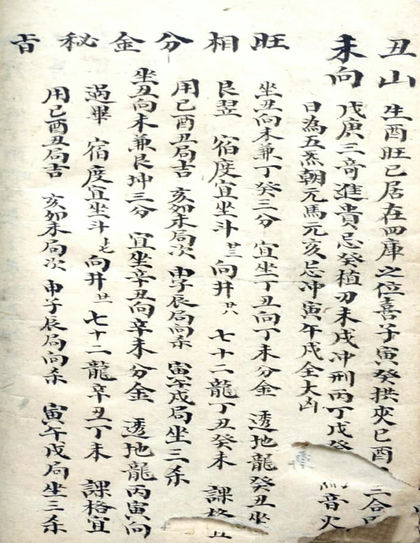 丑山 生酉旺巳居在四庫之位喜子寅癸拱夾巳酉 三合
未向 戊庚三奇進貴忌癸植刃未戌冲刑丙丁戊癸 音火
日為五炁朝元馬元亥忌冲寅午戌全大凶
旺相分金秘旨
坐丑向未兼丁癸三分 宜坐丁丑向丁未分金 透地龍癸丑坐
艮翌 宿度宜坐斗廿三向井廿八 七十二龍丁丑癸未 課格
用巳酉丑局吉 亥卯未局次 申子辰局向杀 寅午戌局坐三杀
坐丑向未兼艮坤三分 宜坐辛丑向辛未分金 透地龍丙寅向
過畢 宿度宜坐斗十七向井廿 七十二龍辛丑丁未 課格宜
用巳酉丑局吉 亥卯未局次 申子辰局向杀 寅午戌局坐三杀